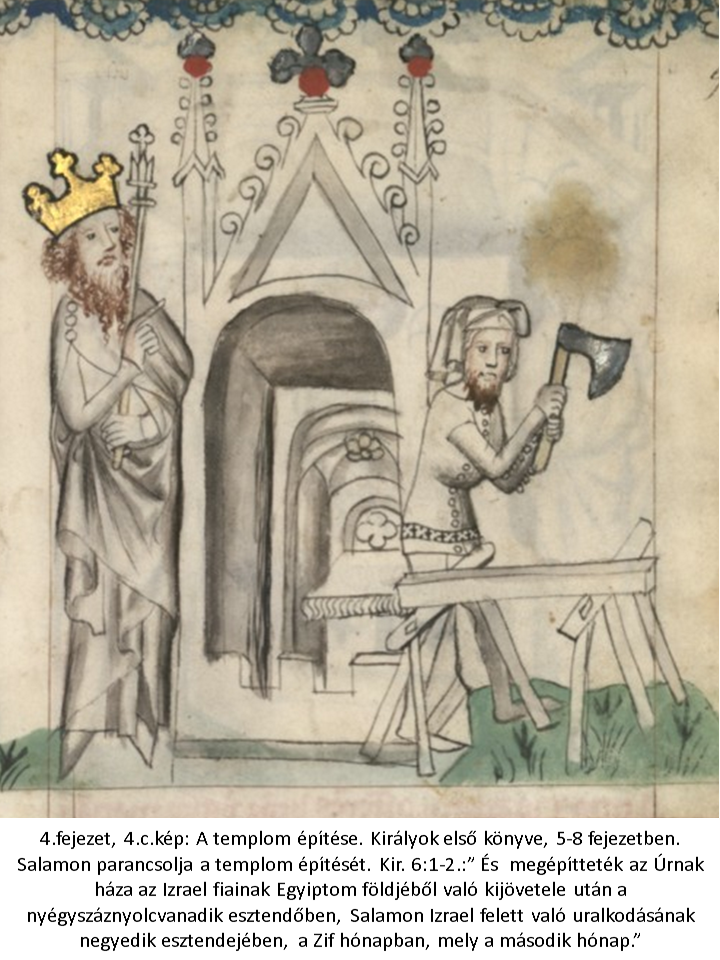 4.fejezet, 4.c.kép: A templom építése. Királyok első könyve, 5-8 fejezetben.
Salamon parancsolja a templom építését. Kir. 6:1-2.:” És megépítteték az Úrnak
háza az Izrael fiainak Egyiptom földjéből való kijövetele után a
nyégyszáznyolcvanadik esztendőben, Salamon Izrael felett való uralkodásának
negyedik esztendejében, a Zif hónapban, mely a második hónap.”